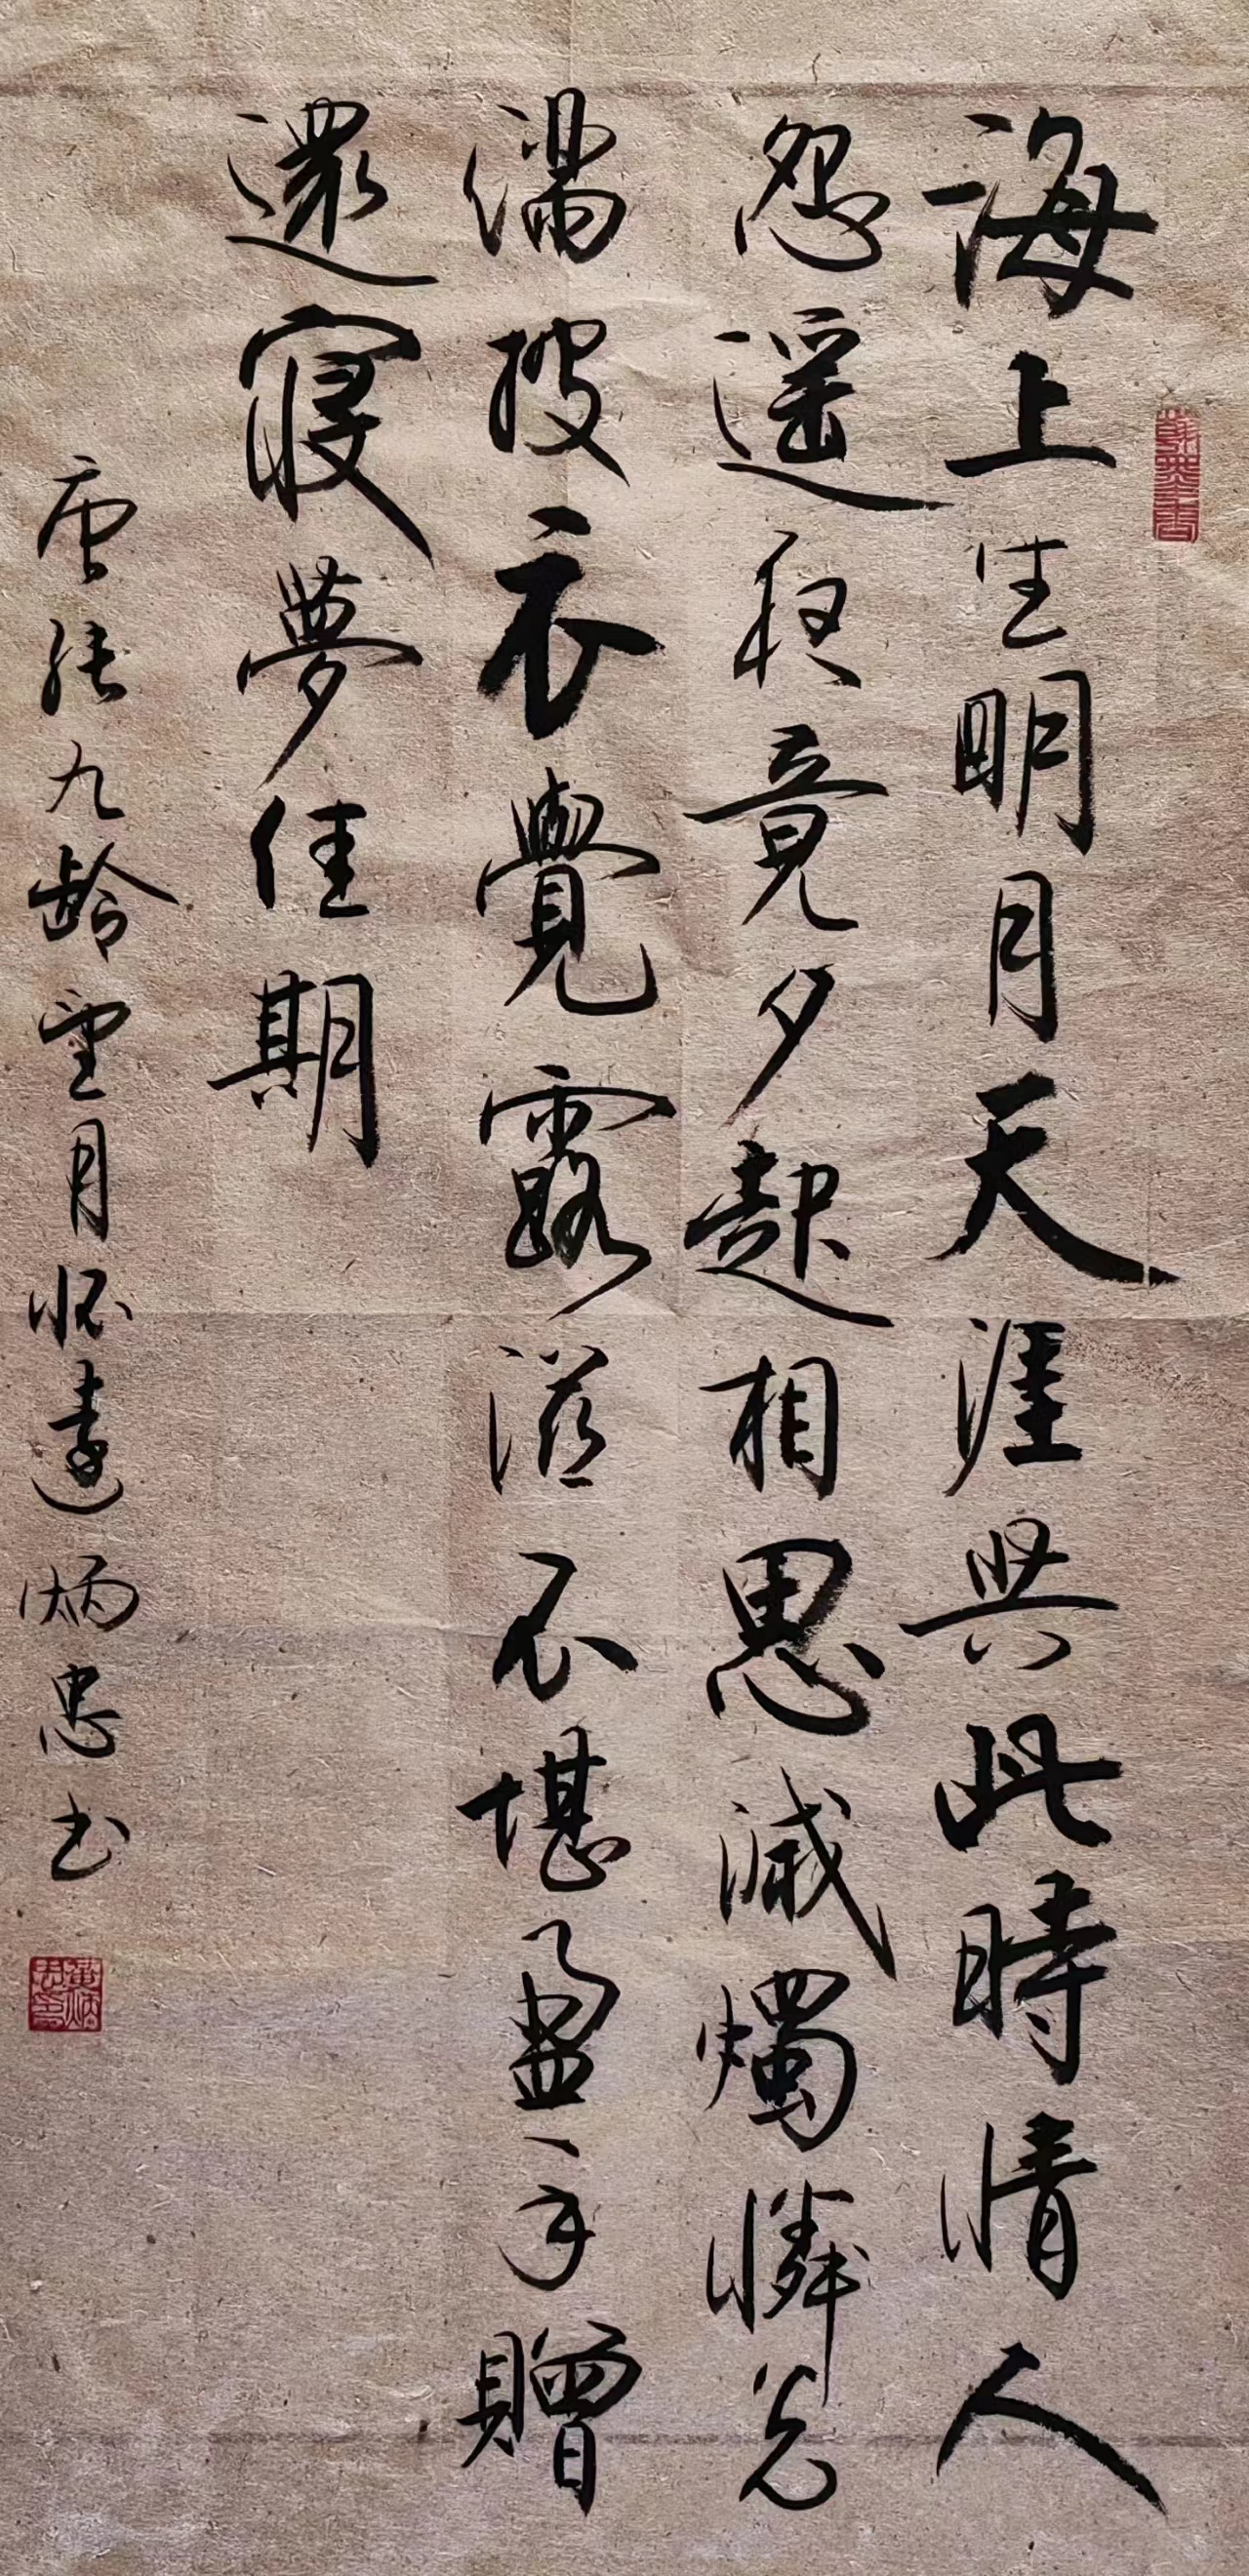 海上生明月天涯共此時情人
怨遥夜竟夕起相思滅燭憐光
滿披衣覺露滋不堪盈手贈
還寢夢佳期
唐張九齡望月怀遠炳忠书
黃炳忠印